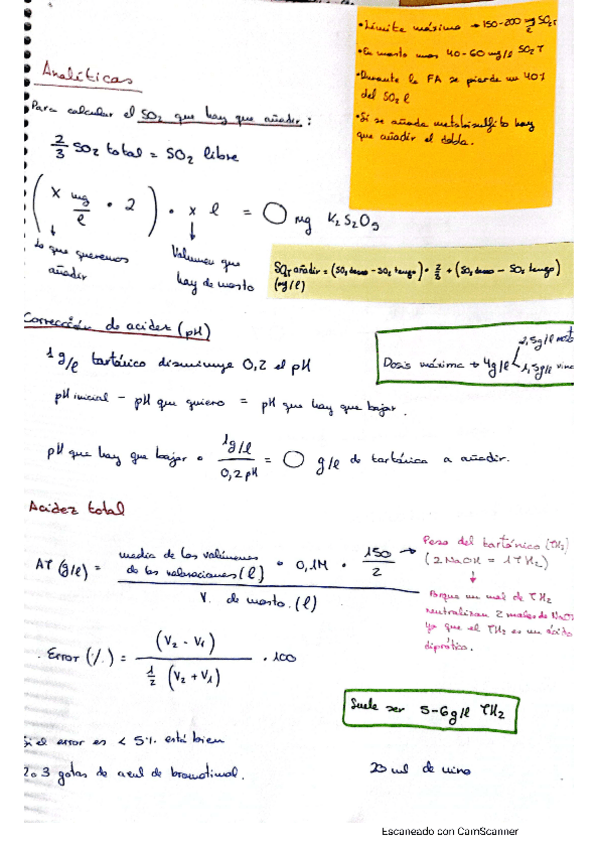 • Límite máximo → 150-200 mg/l SO2T
• En mosto unos 40-60 mg/l SO2T
• Durante la FA se pierde un 40%
del SO2 l
• Si se añade metabisulfito hay
que añadir el doble.
Analíticas
Para calcular el SO2 que hay que añadir:
2/3 SO2 total = SO2 libre
(x mg/l • 2) • x l = O mg K2S2O5
↓ ↓
Lo que queremos
añadir
Volumen que
hay de mosto
SO2T añadir = (SO2 deseo - SO2 tengo) • 2/3 + (SO2 deseo - SO2 tengo)
(mg/l)
Corrección de acidez (pH)
1 g/l tartárico disminuye 0,2 el pH
Dosis máxima → 4g/l
2,5g/l
1,5g/l
pH inicial - pH que quiero = pH que hay que bajar.
pH que hay que bajar • 1g/l / 0,2 pH = O g/l de tartárico a añadir.
Acidez total
AT (g/l) = media de los volúmenes de las valoraciones (l) • 0,1M • 150/2 / V. de mosto. (l)
→ Peso del tartárico (TH2)
(2 NaOH = 1 TH2)
↓
Porque un mol de TH2
neutralizan 2 moles de
ya que el TH2 es un ácido
diprótico.
Error (%) = (V2 - V1) / 1/2 (V2 + V1) • 100
Suele ser 5-6g/l TH2
Si el error es < 5% está bien
2 o 3 gotas de azul de bromotimol.
23 ml de vino
Escaneado con CamScanner